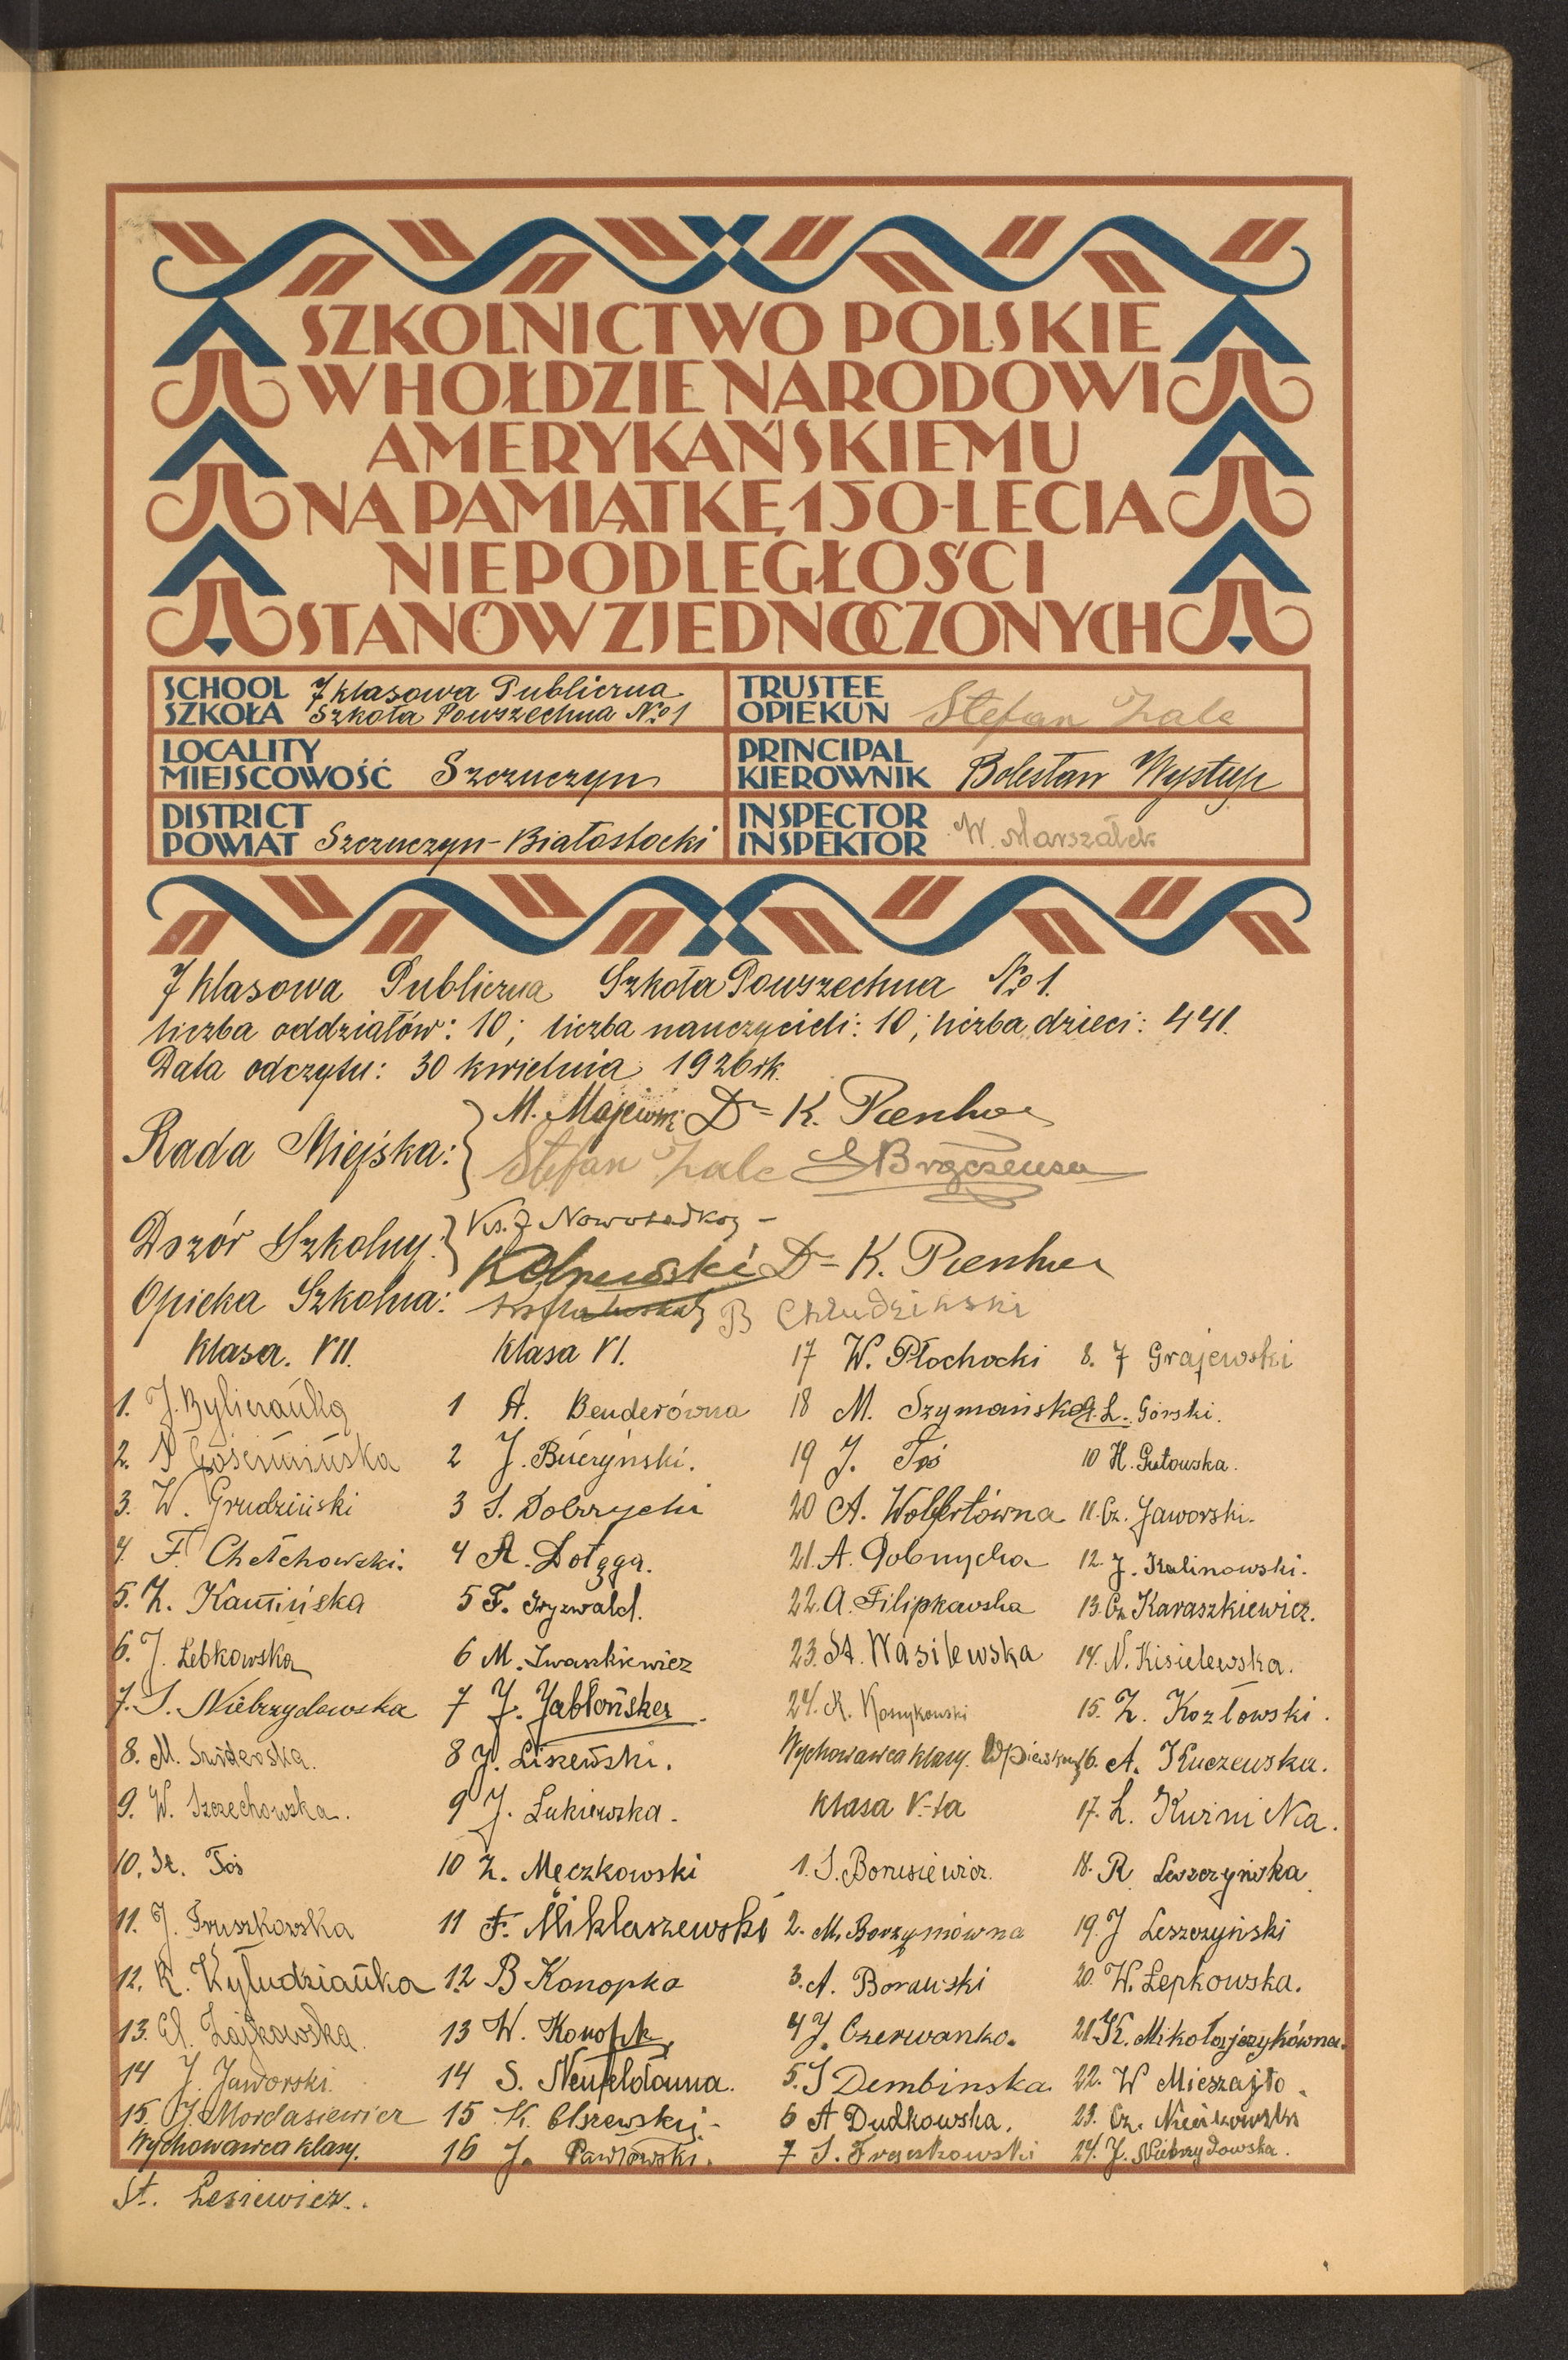 SZKOLNICTWO POLSKIE
W HOŁDZIE NARODOWI
AMERYKAŃSKIEMU
NA PAMIĄTKĘ 150-LECIA
NIEPODLEGŁOŚCI
STANÓW ZJEDNOCZONYCH
SCHOOL
SZKOŁA
7 klasowa Publiczna
Szkoła Powszechna No 1
TRUSTEE
OPIEKUN
Stefan
LOCALITY
MIEJSCOWOŚĆ
Szczuczyn
PRINCIPAL
KIEROWNIK
Bolesław Występ
DISTRICT
POWIAT
Szczuczyn-Białostocki
INSPECTOR
INSPEKTOR
W. Marszałek
7 klasowa Publiczna Szkoła Powszechna No 1.
liczba oddziałów: 10; liczba nauczycieli: 10; liczba dzieci: 441.
Data odczytu: 30 kwietnia 1926 rk.
Rada Miejska:
M. Majewski Dr K.
Stefan
Dozór Szkolny:
Ks. J
Dr K.
Opieka Szkolna:
B Chludziński
Klasa. VII.
1. J.
2.
3. W. Grudziński
4. F. Chełchowski.
5. Z. Kamińska
6. J. Łebkowska
7. S. Niebrzydowska
8. M. Świderska.
9. W. Szczechowska.
10. St. Toś
11. J. Truszkowska
12. K.
13. El. Zajkowska.
14 J. Jaworski.
15. J. Mordasiewicz
Wychowawca klasy.
St. Lesiewicz.
Klasa VI.
1 A. Benderówna
2 J. Buczyński.
3 S. Dobrzycki
4 A. Dołęga.
5 F. Grynwald.
6 M. Iwaszkiewicz
7 J. Jabłońska.
8 J. Liszewski.
9 J. Łukiewska.
10 Z. Męczkowski
11 F. Miklaszewski
12 B Konopka
13 W. Konopk
14 S. Neufeldówna.
15 K. Olszewski.
16 J. Pawłowski.
17 W. Płochocki
18 M. Szymańska
19 J. Toś
20 A. Wolfertówna
21. A. Dobrzycka
22. A. Filipkowska
23. St. Wasilewska
24. K. Kossykowski
Wychowawca klasy.
Klasa V-ta
1. S. Borusiewicz.
2. M. Borzymówna
3. A. Borawski
4 J. Czerwonko.
5. J Dembinska.
6 A Dudkowska.
7 S.
8. J Grajewski
9. L. Górski.
10 H. Gutowska.
11. Cz. Jaworski.
12. J. Kalinowski.
13. Cz. Karaszkiewicz.
14. N. Kisielewska.
15. Z. Kozłowski.
16. A. Kuczewska.
17. L.
18. R. Leszczyńska.
19. J Leszczyński
20. W. Łepkowska.
21. K. Mikołajczykówna.
22. W Mieszajło.
23. Cz.
24. J. Niebrzydowska.